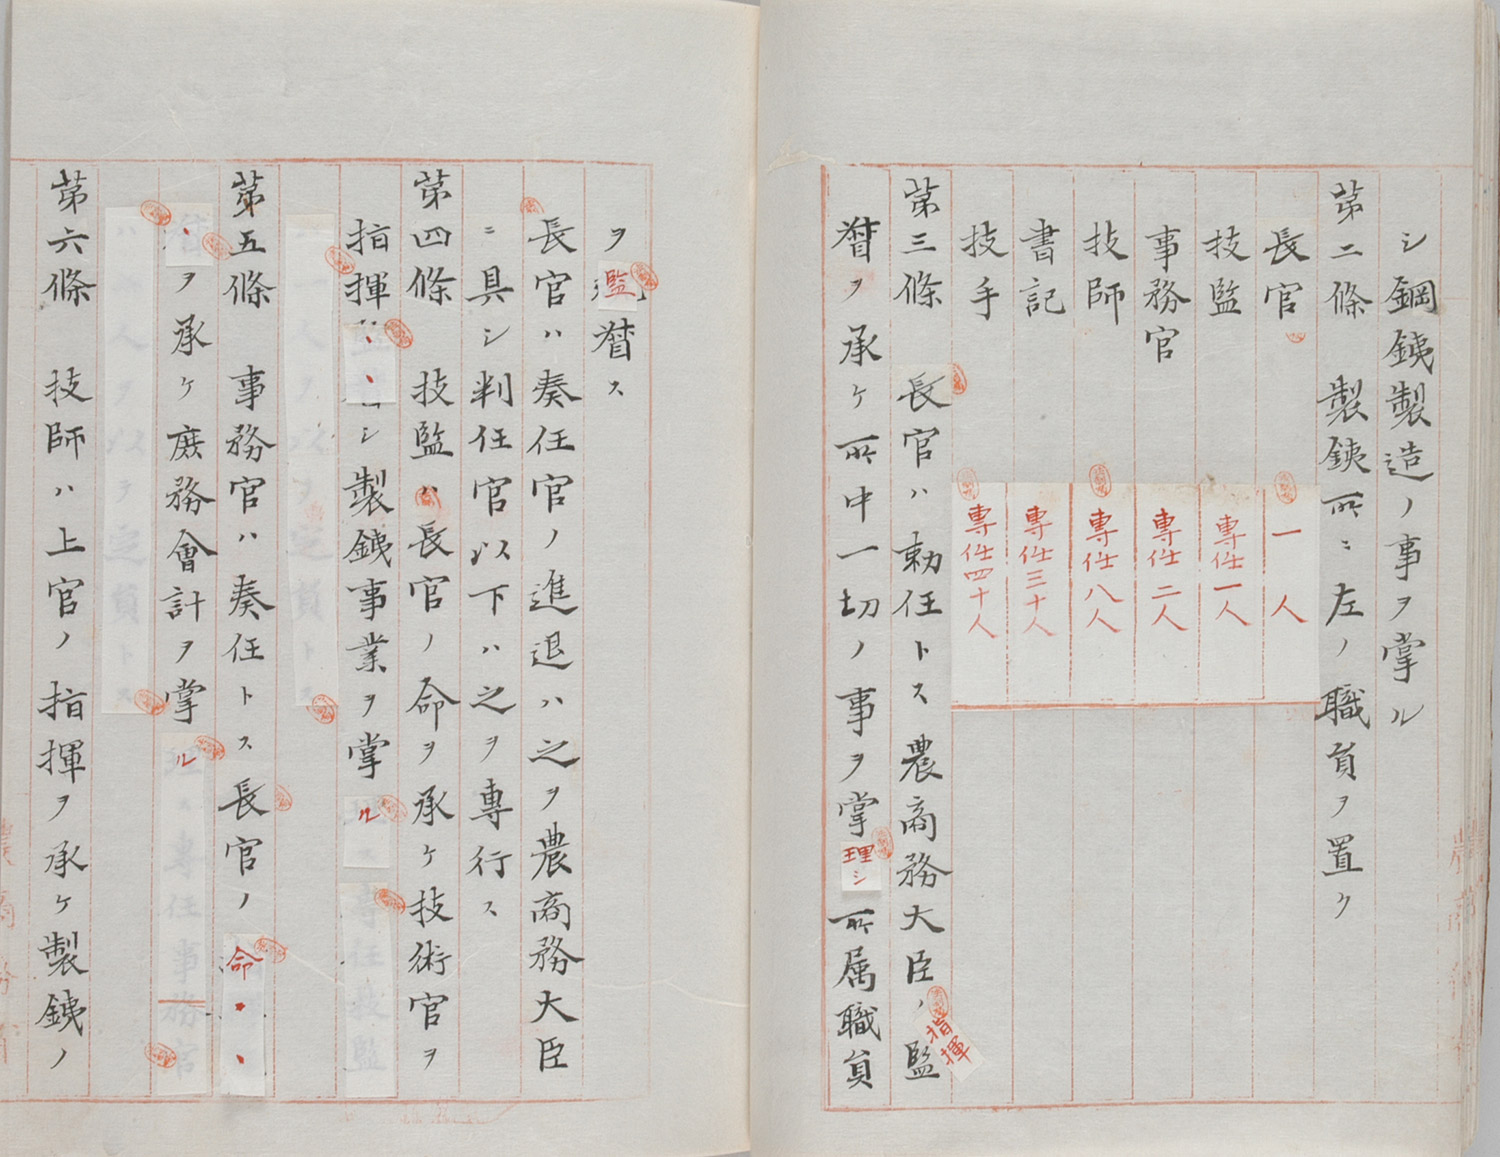 シ鋼銕製造ノ事ヲ掌ル
第二條 製銕所ニ左ノ職員ヲ置ク
長官 一人
技監 専任一人
事務官 専任二人
技師 専任八人
書記 専任三十人
技手 専任四十人
第三條 長官ハ勅任トス農商務大臣ノ指揮監
督ヲ承ケ所中一切ノ事ヲ掌理シ所属職員
ヲ監督ス
長官ハ奏任官ノ進退ハ之ヲ農商務大臣
ニ具シ判任官以下ハ之ヲ専行ス
第四條 技監ハ長官ノ命ヲ承ケ技術官ヲ
指揮シ製銕事業ヲ掌ル
第五條 事務官ハ奏任トス長官ノ命
ヲ承ケ庶務會計ヲ掌ル
第六條 技師ハ上官ノ指揮ヲ承ケ製銕ノ